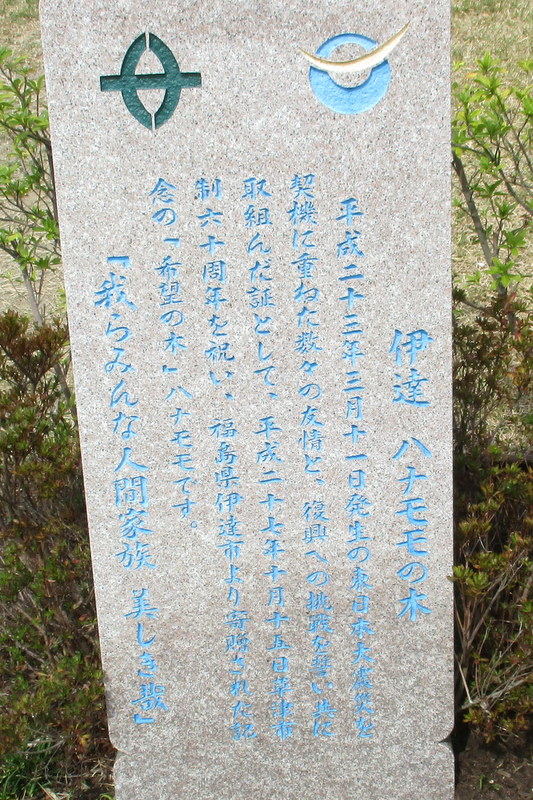 伊達 ハナモモの木
平成二十三年三月十一日発生の東日本大震災を
契機に重ねた数々の友情と、復興への挑戦を誓い共に
取組んだ証として、平成二十七年十月十五日草津市
制六十周年を祝い、福島県伊達市より寄贈された記
念の「希望の木」ハナモモです。
「我らみんな人間家族 美しき歌」